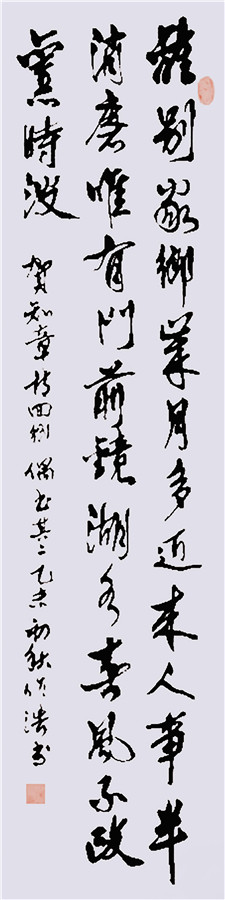 離別家鄉歲月多近來人事半
消磨唯有門前鏡湖水春風不改
舊時波
賀知章詩回鄉偶書其二乙未初秋浩書